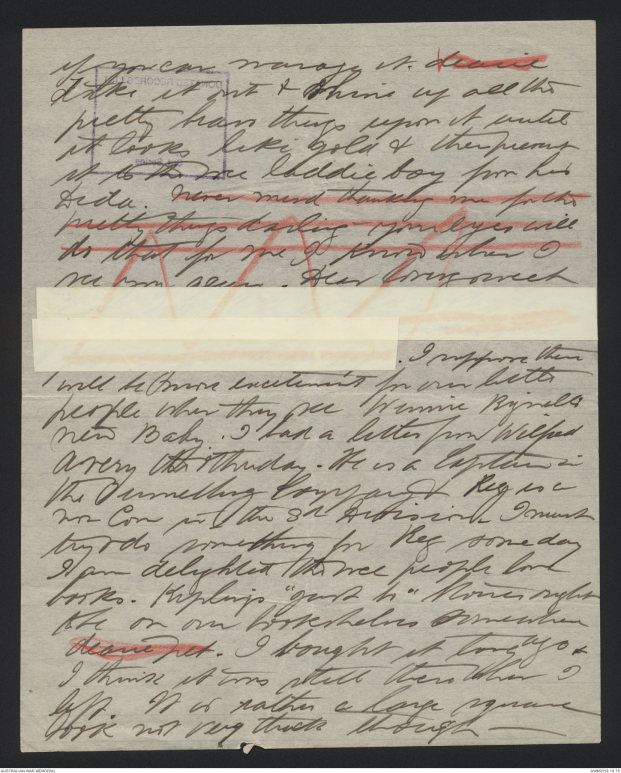 if you can manage it. dearie
take it out & shine up all the
pretty brass things upon it until
it looks like gold & then present
it to the wee laddie boy from his
Dida. Never mind thanking me for the
pretty things darling your eyes will
do that for me I know when I
see you again. Dear
. I suppose there
will be more excitement for our little
people when they see Winnie
new Baby. I had a letter from Wilfred
Avery the other day. He is a Captain in
the Tunnelling Company and Reg is a
non Com in the 3rd Division I must
try & do something for Reg some day
I am delighted the wee people love
books. Kipling's "Just so" Stories ought
to be on our bookshelves somewhere
. I bought it long ago &
I think it was still there when I
left. It is rather a large square
book not very thick though —
AUSTRALIAN WAR MEMORIAL